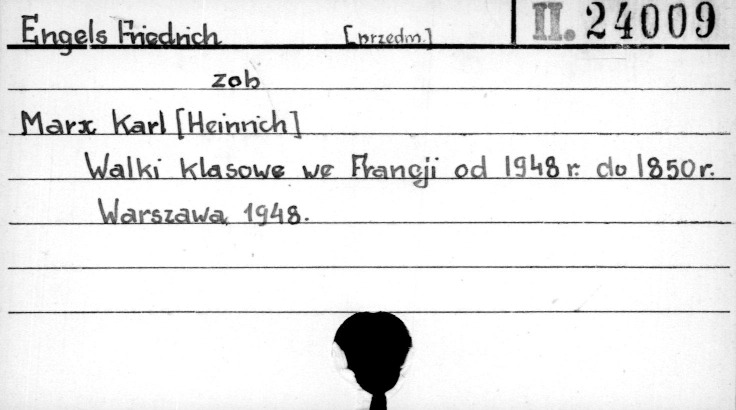 Engels Friedrich [przedm.] II. 24009
zob
Marx Karl [Heinrich]
Walki klasowe we Francji od 1948 r. do 1850 r.
Warszawa, 1948.